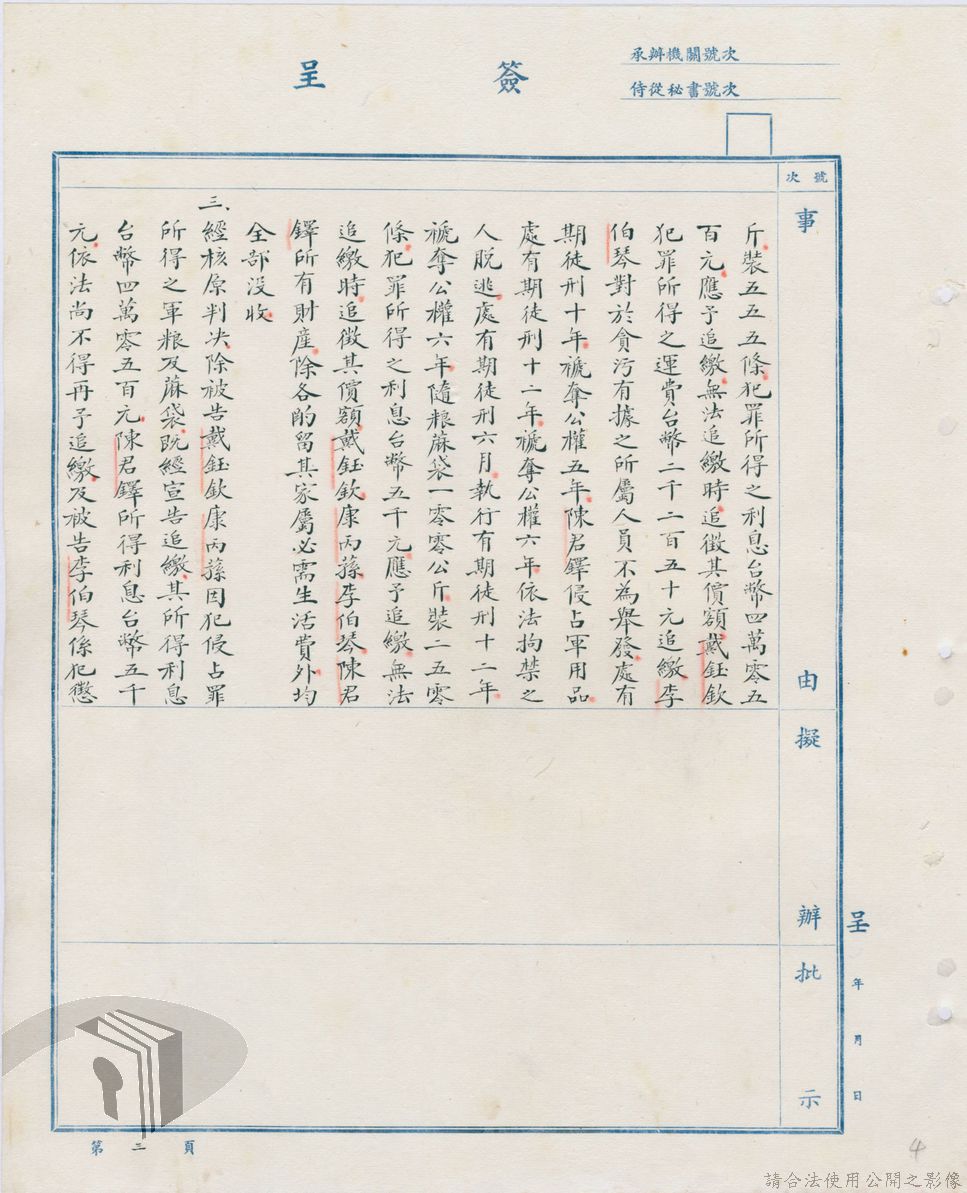 承辦機關號次
侍從秘書號次
簽呈
號次
事由
擬辦
批示
斤裝五五五條犯罪所得之利息台幣四萬零五
百元應予追繳無法追繳時追徵其價額戴鈺欽
犯罪所得之運費台幣二千二百五十元追繳李
伯琴對於貪污有據之所屬人員不為舉發處有
期徒刑十年褫奪公權五年陳君鐸侵占軍用品
處有期徒刑十二年褫奪公權六年依法拘禁之
人脫逃處有期徒刑六月執行有期徒刑十二年
褫奪公權六年隨粮蔴袋一零零公斤裝二五零
條犯罪所得之利息台幣五千元應予追繳無法
追繳時追徵其價額戴鈺欽康丙蓀李伯琴陳君
鐸所有財產除各酌留其家屬必需生活費外均
全部没收
三、經核原判决除被告戴鈺欽康丙蓀因犯侵占罪
所得之軍粮及蔴袋既經宣告追繳其所得利息
台幣四萬零五百元陳君鐸所得利息台幣五千
元依法尚不得再予追繳及被告李伯琴係犯懲
呈 年 月 日
第 二 頁
4
請合法使用公開之影像